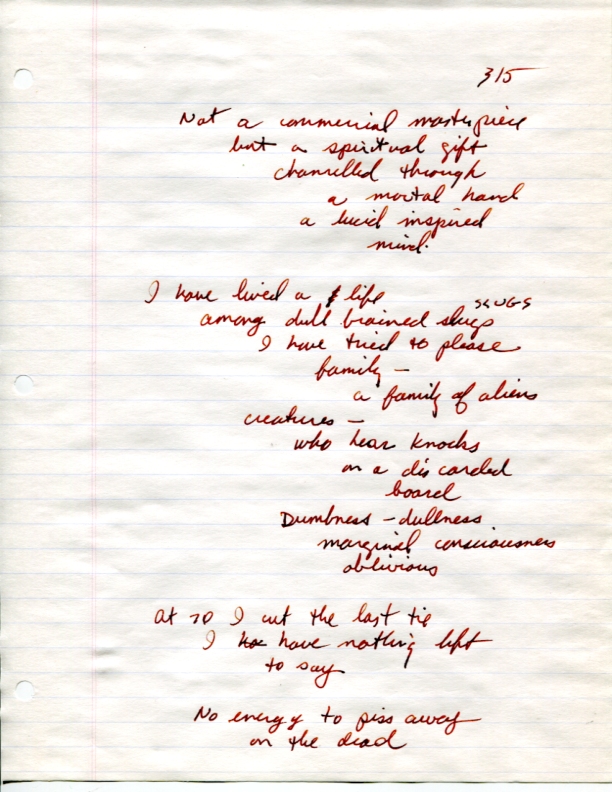 315
Not a commercial masterpiece
but a spiritual gift
channelled through
a mortal hand
a lucid inspired
mind.
I have lived a life
SLUGS
among dull brained slugs
I have tried to please
family –
a family of aliens
creatures –
who hear knocks
on a discarded
board
Dumbness – dullness
marginal consciousness
oblivious
at 70 I cut the last tie
I have nothing left
to say
No energy to piss away
on the dead